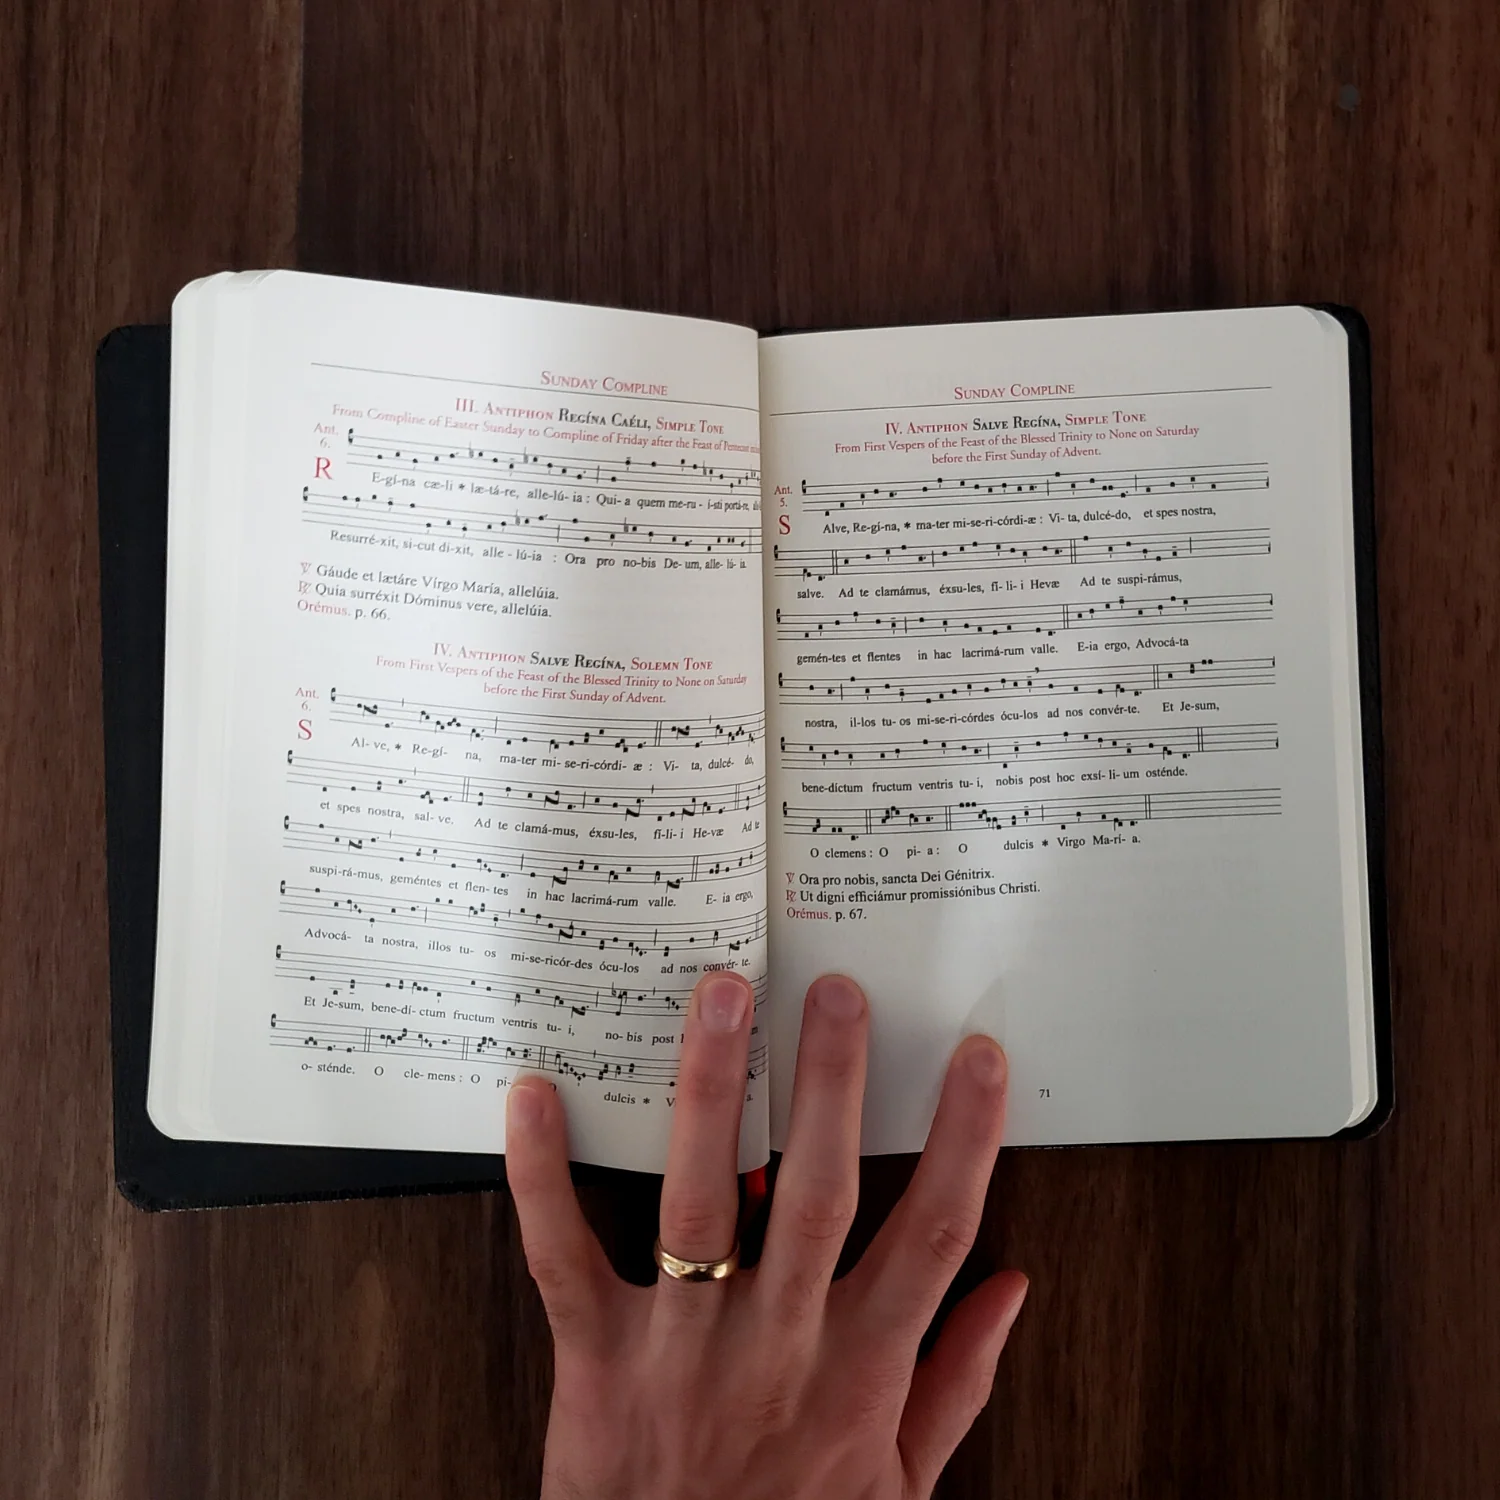 SUNDAY COMPLINE
III. ANTIPHON REGÍNA CAÉLI, SIMPLE TONE
From Compline of Easter Sunday to Compline of Friday after the Feast of Pentecost
Ant.
6.
R
E-gí-na cæ-li * læ-tá-re, alle-lú-ia : Qui-a quem me-ru-í-sti portá-re,
Resurré-xit, si-cut di-xit, alle-lú-ia : Ora pro no-bis De-um, alle-lú-ia.
℣ Gáude et lætáre Vírgo María, allelúia.
℟ Quia surréxit Dóminus vere, allelúia.
Orémus. p. 66.
IV. ANTIPHON SALVE REGÍNA, SOLEMN TONE
From First Vespers of the Feast of the Blessed Trinity to None on Saturday
before the First Sunday of Advent.
Ant.
6.
S
Al-ve, * Re-gí-na, ma-ter mi-se-ri-córdi-æ : Vi-ta, dulcé-do,
et spes nostra, sal-ve. Ad te clamá-mus, éxsu-les, fí-li-i He-væ Ad te
suspi-rá-mus, geméntes et flen-tes in hac lacrimá-rum valle. E-ia ergo,
Advocá-ta nostra, illos tu-os mi-se-ricór-des ócu-los ad nos convér-te.
Et Je-sum, bene-dí-ctum fructum ventris tu-i, no-bis post
o-sténde. O cle-mens : O pi- O dulcis * V a.
SUNDAY COMPLINE
IV. ANTIPHON SALVE REGÍNA, SIMPLE TONE
From First Vespers of the Feast of the Blessed Trinity to None on Saturday
before the First Sunday of Advent.
Ant.
5.
S
Alve, Re-gí-na, * ma-ter mi-se-ri-córdi-æ : Vi-ta, dulcé-do, et spes nostra,
salve. Ad te clamámus, éxsu-les, fí-li-i Hevæ Ad te suspi-rámus,
gemén-tes et flentes in hac lacrimá-rum valle. E-ia ergo, Advocá-ta
nostra, il-los tu-os mi-se-ri-córdes ócu-los ad nos convér-te. Et Je-sum,
bene-díctum fructum ventris tu-i, nobis post hoc exsí-li-um osténde.
O clemens : O pi-a : O dulcis * Virgo Ma-rí-a.
℣ Ora pro nobis, sancta Dei Génitrix.
℟ Ut digni efficiámur promissiónibus Christi.
Orémus. p. 67.
71